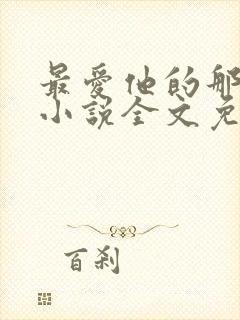 最爱他的那
小说全文免
百刹